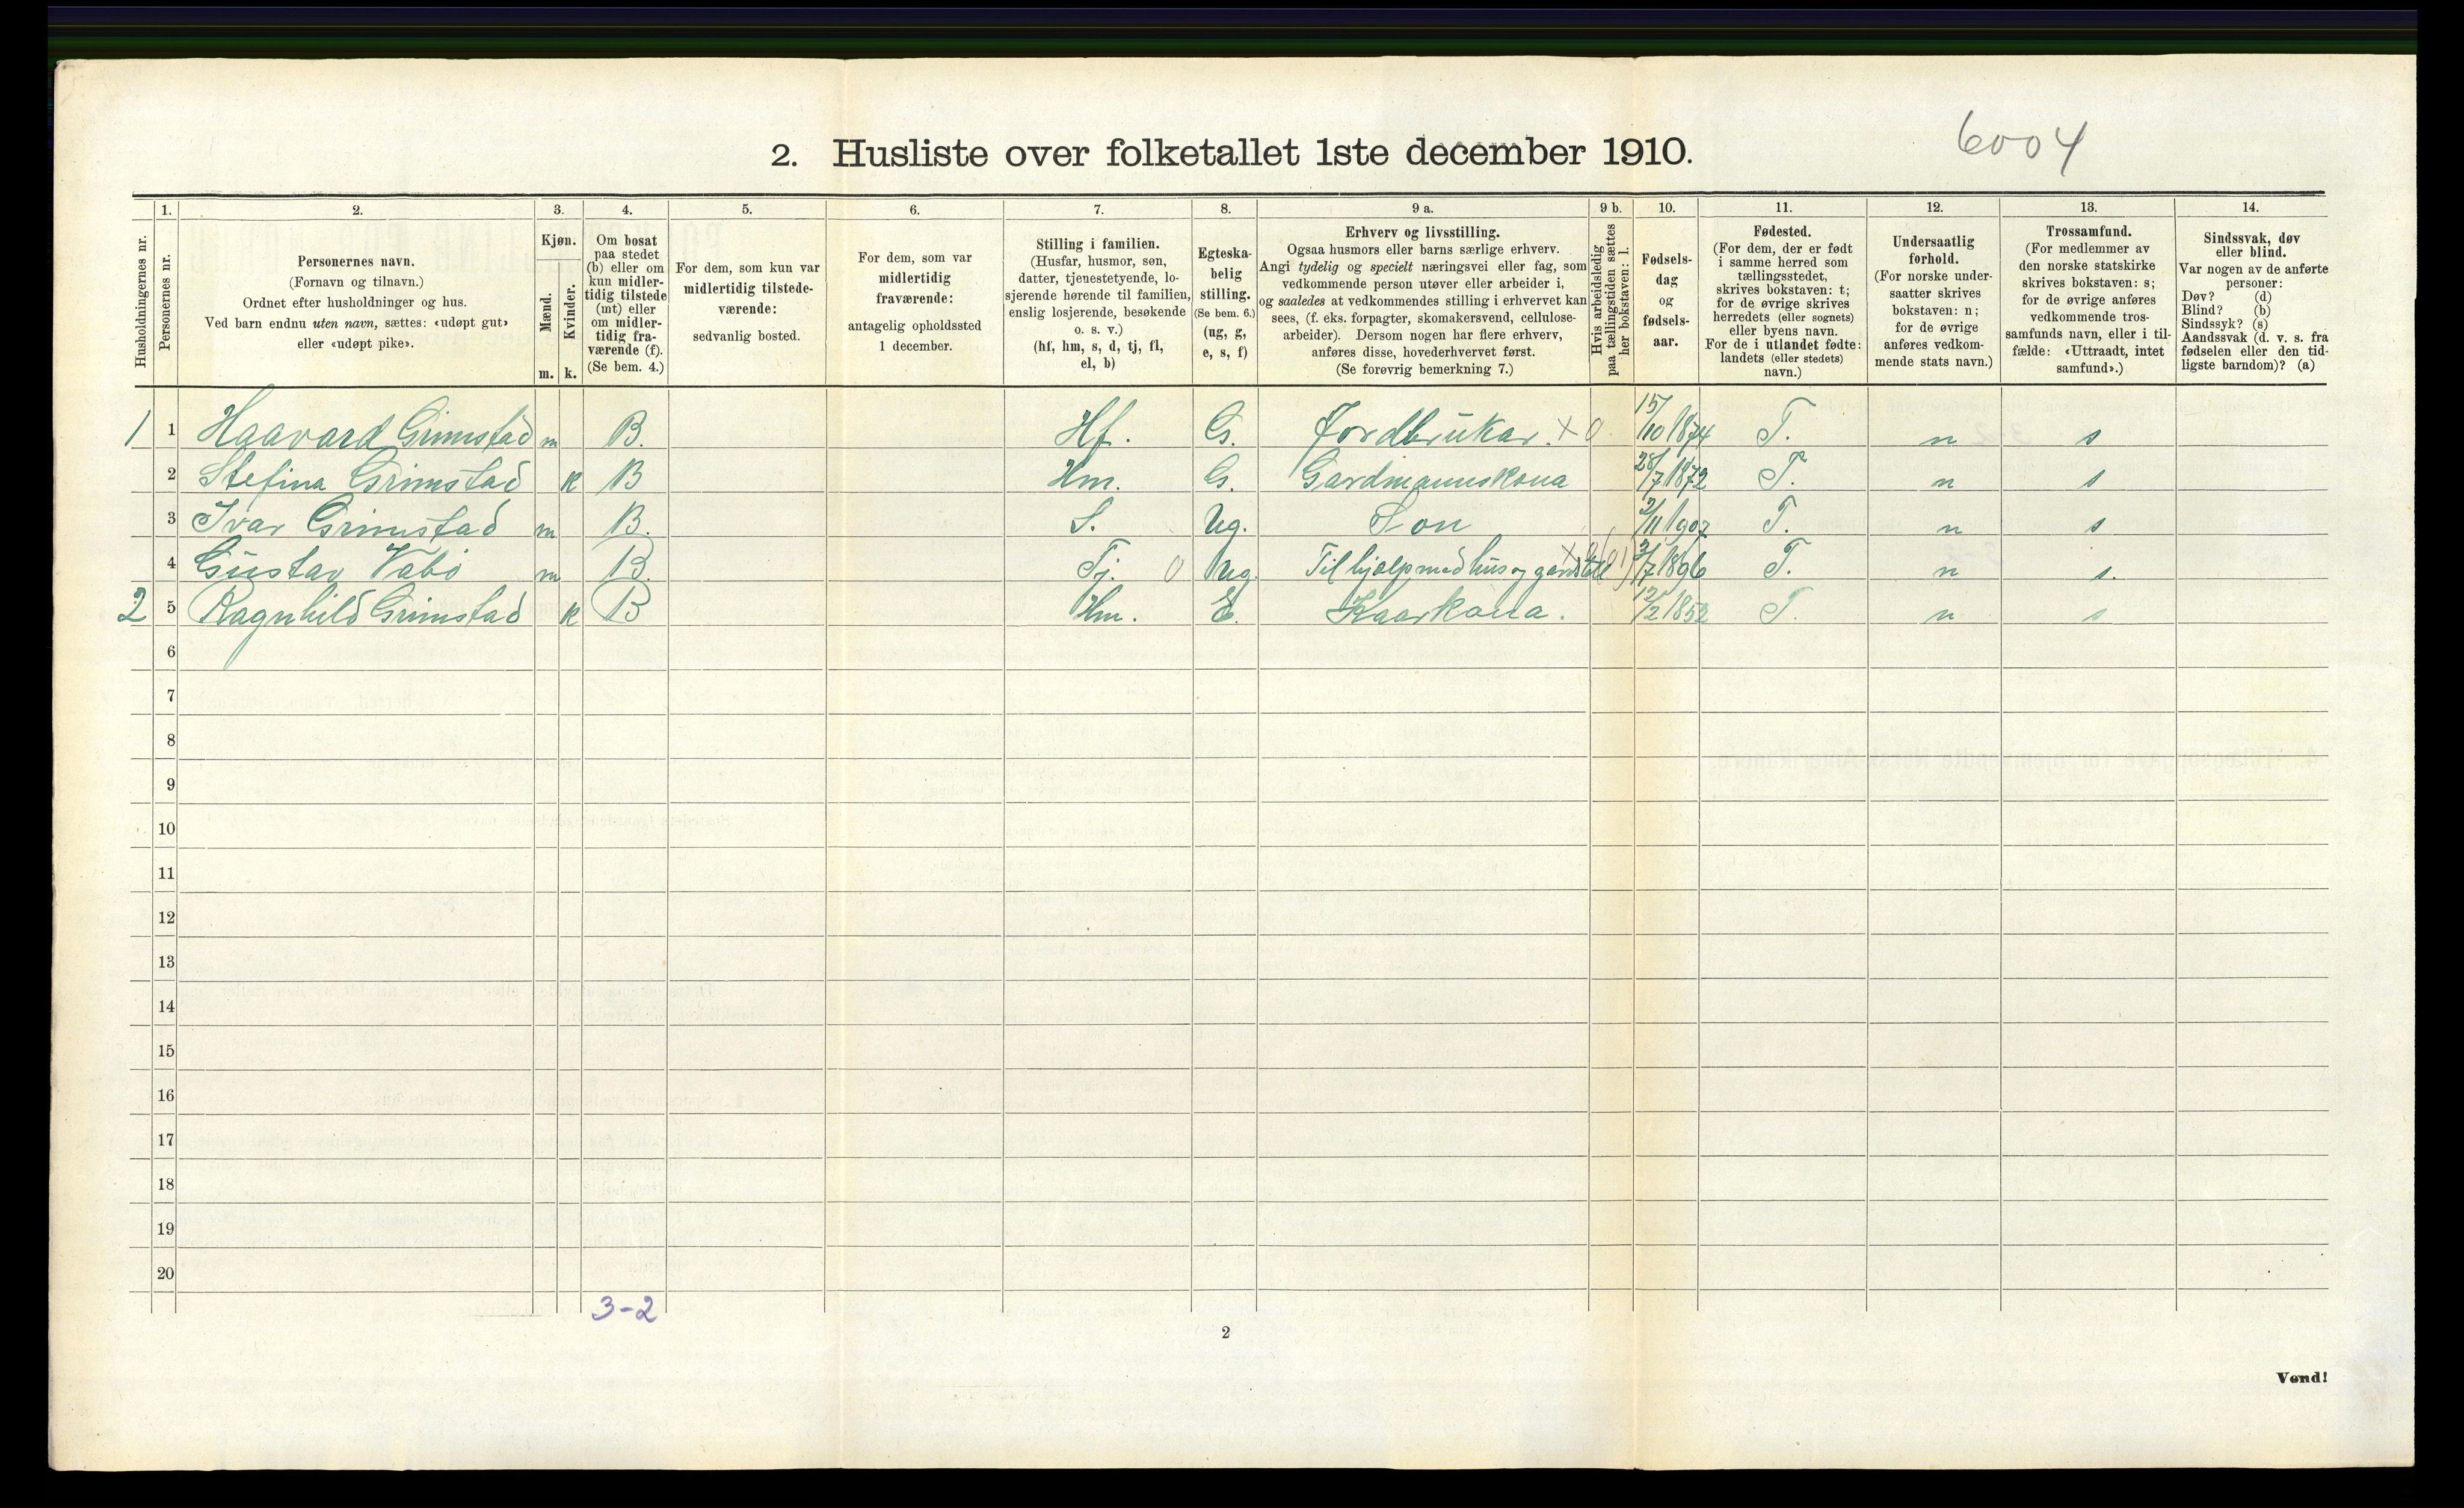 6004
2. Husliste over folketallet 1ste december 1910.
Husholdningernes nr.
1.
Personernes nr.
2.
Personernes navn.
(Fornavn og tilnavn.)
Ordnet efter husholdninger og hus.
Ved barn endnu uten navn, sættes: «udøpt gut»
eller «udøpt pike».
3.
Kjøn.
Mænd.
Kvinder.
m. k.
4.
Om bosat
paa stedet
(b) eller om
kun midler-
tidig tilstede
(mt) eller
om midler-
tidig fra-
værende (f).
(Se bem. 4.)
5.
For dem, som kun var
midlertidig tilstede-
værende:
sedvanlig bosted.
6.
For dem, som var
midlertidig
fraværende:
antagelig opholdssted
1 december.
7.
Stilling i familien.
(Husfar, husmor, søn,
datter, tjenestetyende, lo-
sjerende hørende til familien,
enslig losjerende, besøkende
o. s. v.)
(hf, hm, s, d, tj, fl,
el, b)
8.
Egteska-
belig
stilling.
(Se bem. 6.)
(ug, g,
e, s, f)
9 a.
Erhverv og livsstilling.
Ogsaa husmors eller barns særlige erhverv.
Angi tydelig og specielt næringsvei eller fag, som
vedkommende person utøver eller arbeider i,
og saaledes at vedkommendes stilling i erhvervet kan
sees, (f. eks. forpagter, skomakersvend, cellulose-
arbeider). Dersom nogen har flere erhverv,
anføres disse, hovederhvervet først.
(Se forøvrig bemerkning 7.)
9 b.
Hvis arbeidsledig
paa tællingstiden sættes
her bokstaven: l.
10.
Fødsels-
dag
og
fødsels-
aar.
11.
Fødested.
(For dem, der er født
i samme herred som
tællingsstedet,
skrives bokstaven: t;
for de øvrige skrives
herredets (eller sognets)
eller byens navn.
For de i utlandet fødte:
landets (eller stedets)
navn.)
12.
Undersaatlig
forhold.
(For norske under-
saatter skrives
bokstaven: n;
for de øvrige
anføres vedkom-
mende stats navn.)
13.
Trossamfund.
(For medlemmer av
den norske statskirke
skrives bokstaven: s;
for de øvrige anføres
vedkommende tros-
samfunds navn, eller i til-
fælde: «Uttraadt, intet
samfund».)
14.
Sindssvak, døv
eller blind.
Var nogen av de anførte
personer:
Døv? (d)
Blind? (b)
Sindssyk? (s)
Aandssvak (d. v. s. fra
fødselen eller den tid-
ligste barndom)? (a)
1 1 Haavard Grimstad m B. Hf. G. Jordbrukar. X 0 15/10 1874 T. n s
2 Stefina Grimstad k B Hm. G. Gardmannskona 28/7 1872 T. n s
3 Ivar Grimstad m B. S. Ug. Son 2/11 1907 T. n s
4 Gustav Vabö m B. Tj. 0 Ug. Til hjælp med hus og gardstell 3/7 1896 T. n s.
2 5 Ragnhild Grimstad k B Hm. E. Kaarkona. 12/2 1852 T. n s
6
7
8
9
10
11
12
13
14
15
16
17
18
19
20
3-2
2
Vend!